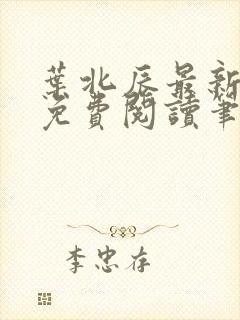 葉北辰最新
免費閱讀筆
李忠存